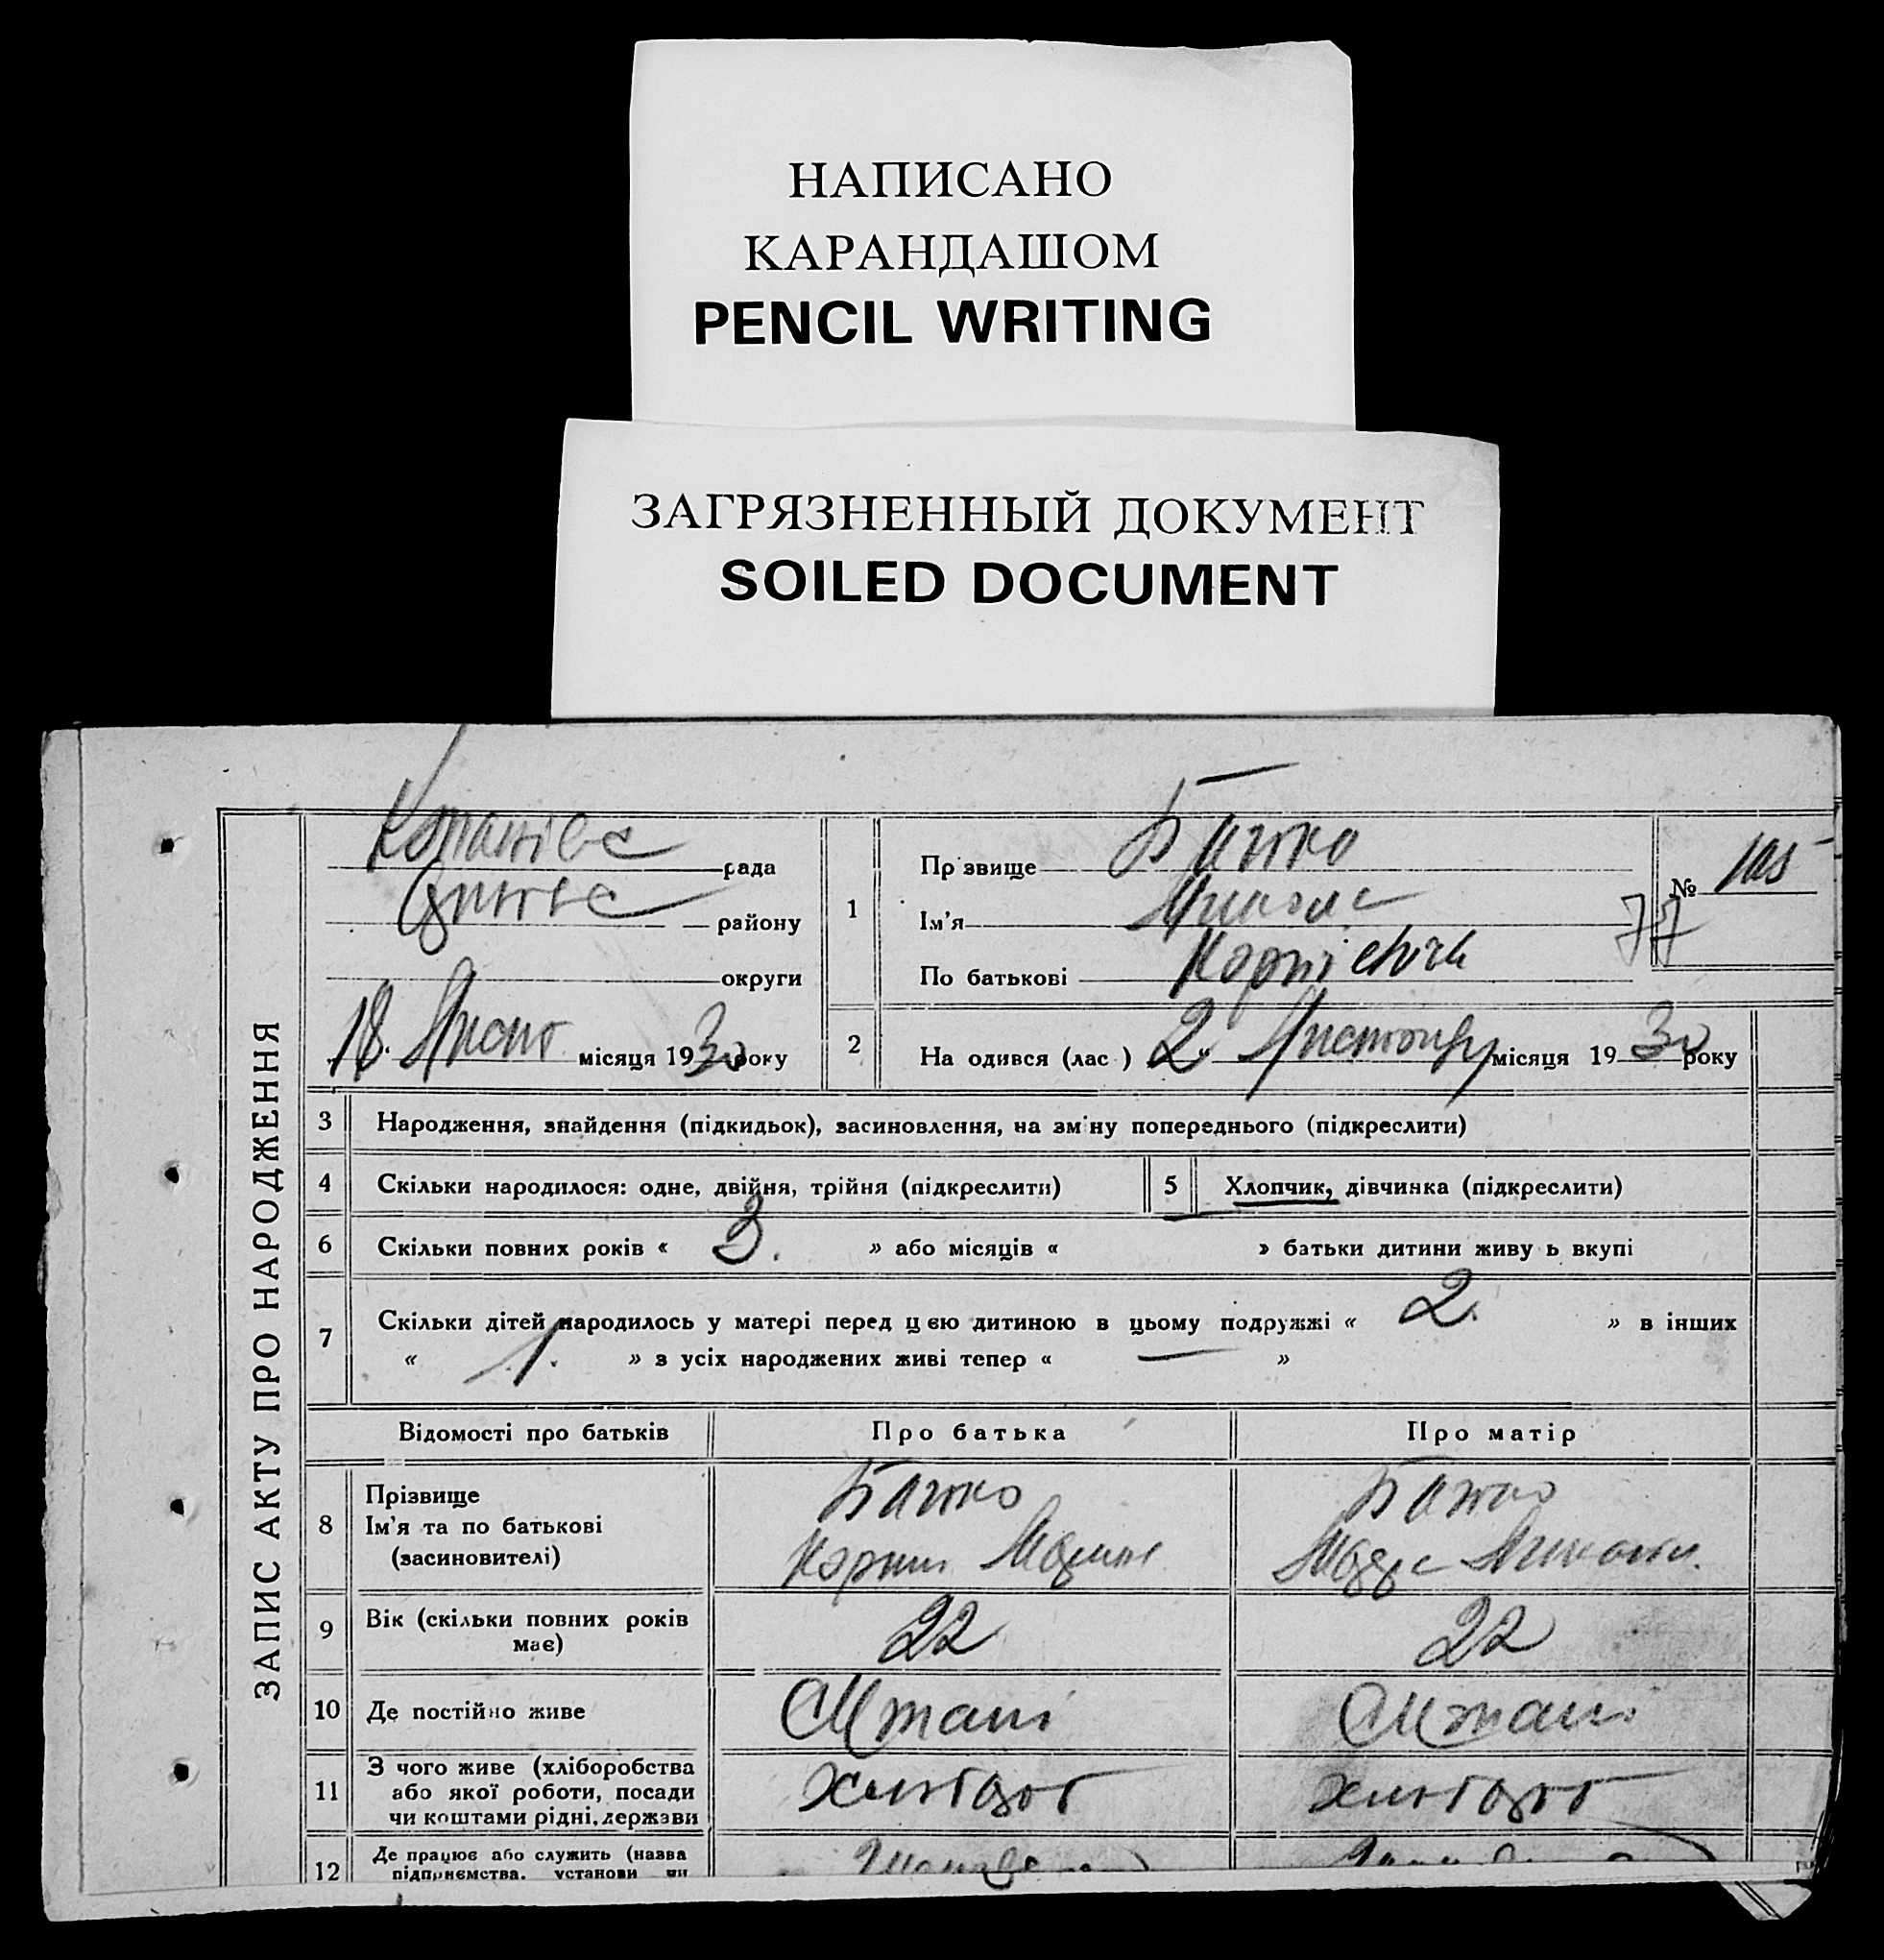 НАПИСАНО
КАРАНДАШОМ
PENCIL WRITING
ЗАГРЯЗНЕННЫЙ ДОКУМЕНТ
SOILED DOCUMENT
ЗАПИС АКТУ ПРО НАРОДЖЕННЯ
рада
району
округи
18. місяця 1930 року
1 Пр звище Бажко
Ім'я Микола
По батькові
№ 105
77
2 На одився (лас ) 2 Листопаду місяця 1930 року
3 Народження, знайдення (підкидьок), засиновлення, на зм ну попереднього (підкреслити)
4 Скільки народилося: одне, двійня, трійня (підкреслити) 5 Хлопчик, дівчинка (підкреслити)
6 Скільки повних років « 3. » або місяців « » батьки дитини живу ь вкупі
7 Скільки дітей народилось у матері перед ц єю дитиною в цьому подружжі « 2. » в інших
« 1. » з усіх народжених живі тепер « — »
Відомості про батьків Про батька Про матір
8 Прізвище Бажко Бажко
Ім'я та по батькові
(засиновителі)
9 Вік (скільки повних років 22 22
має)
10 Де постійно живе
11 З чого живе (хліборобства
або якої роботи, посади
чи коштами рідні, держави
12 Де працює або служить (назва
підприємства, установи чи